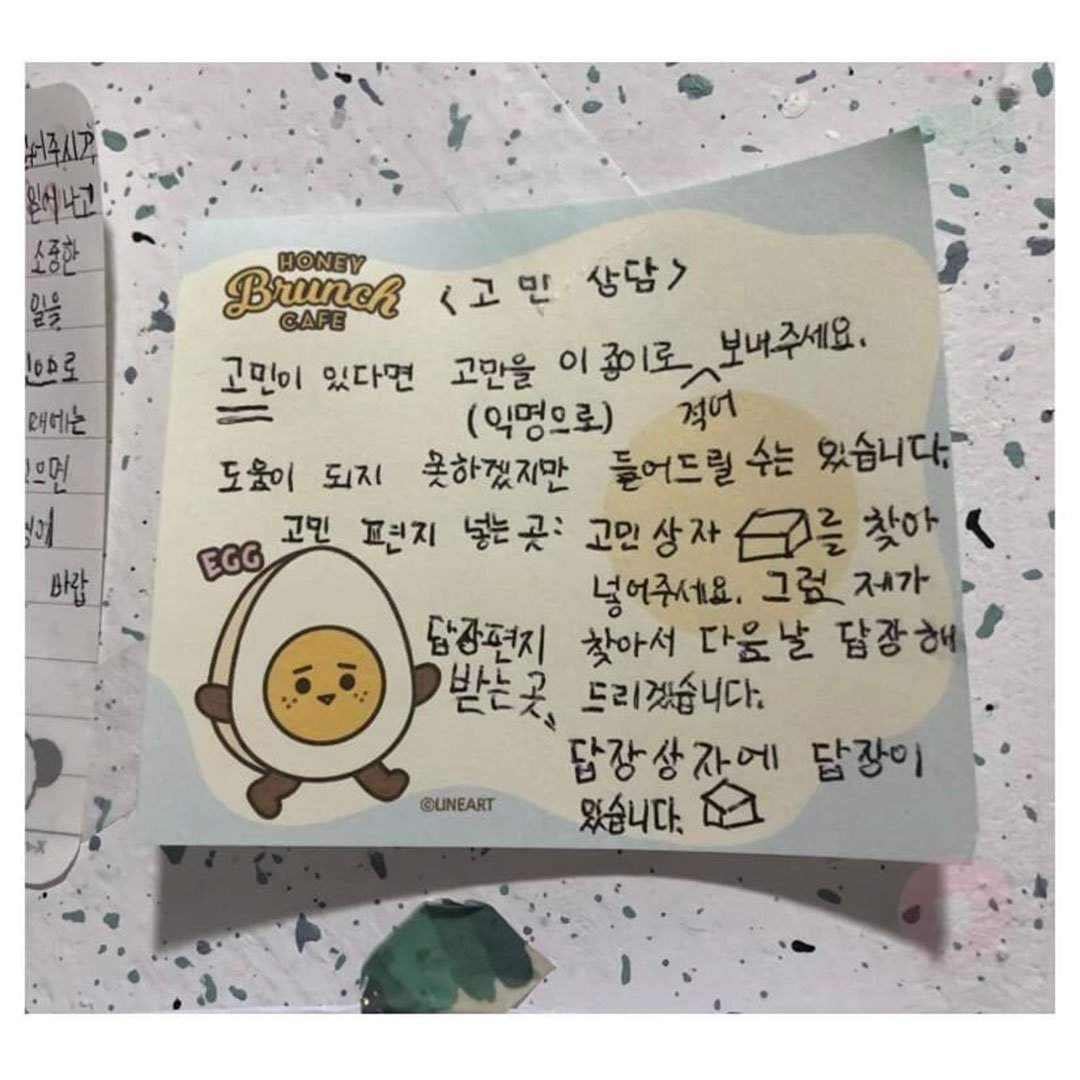 어주시고
원에 나고
소중한
일을
인으로
때에는
으면
에
바랍
HONEY
Brunch
CAFE
<고민 상담>
고민이 있다면 고만을 이 종이로 적어 보내주세요.
(익명으로)
도움이 되지 못하겠지만 들어드릴 수는 있습니다.
고민 편지 넣는 곳: 고민상자 를 찾아
넣어주세요. 그럼 제가
EGG
답장편지 찾아서 다음날 답장해
받는 곳 드리겠습니다.
답장상자에 답장이
있습니다.
©LINEART